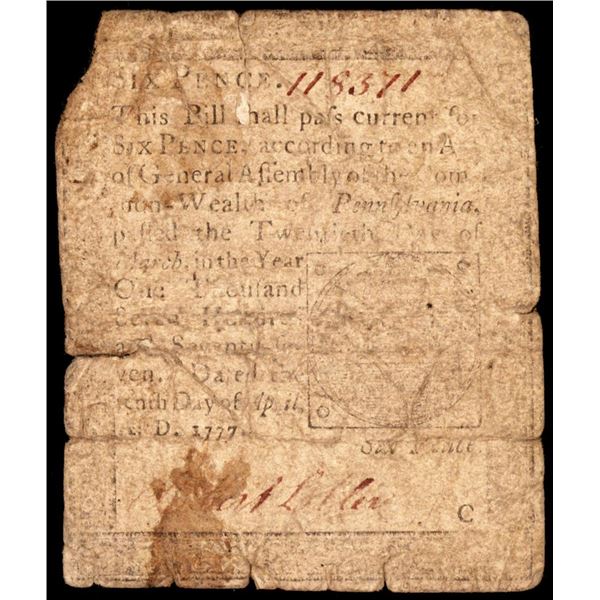 SIX PENCE. 118371
This Bill ſhall paſs current for
SIX PENCE, according to an A
of General Aſſembly of the Com
mon-Wealth of Pennſylvania,
paſſed the Twentieth Day of
March, in the Year
One Thouſand
Seven Hundred
and Seventy-ſe
ven. Dated the
enth Day of April,
A. D. 1777.
Six Pence
C